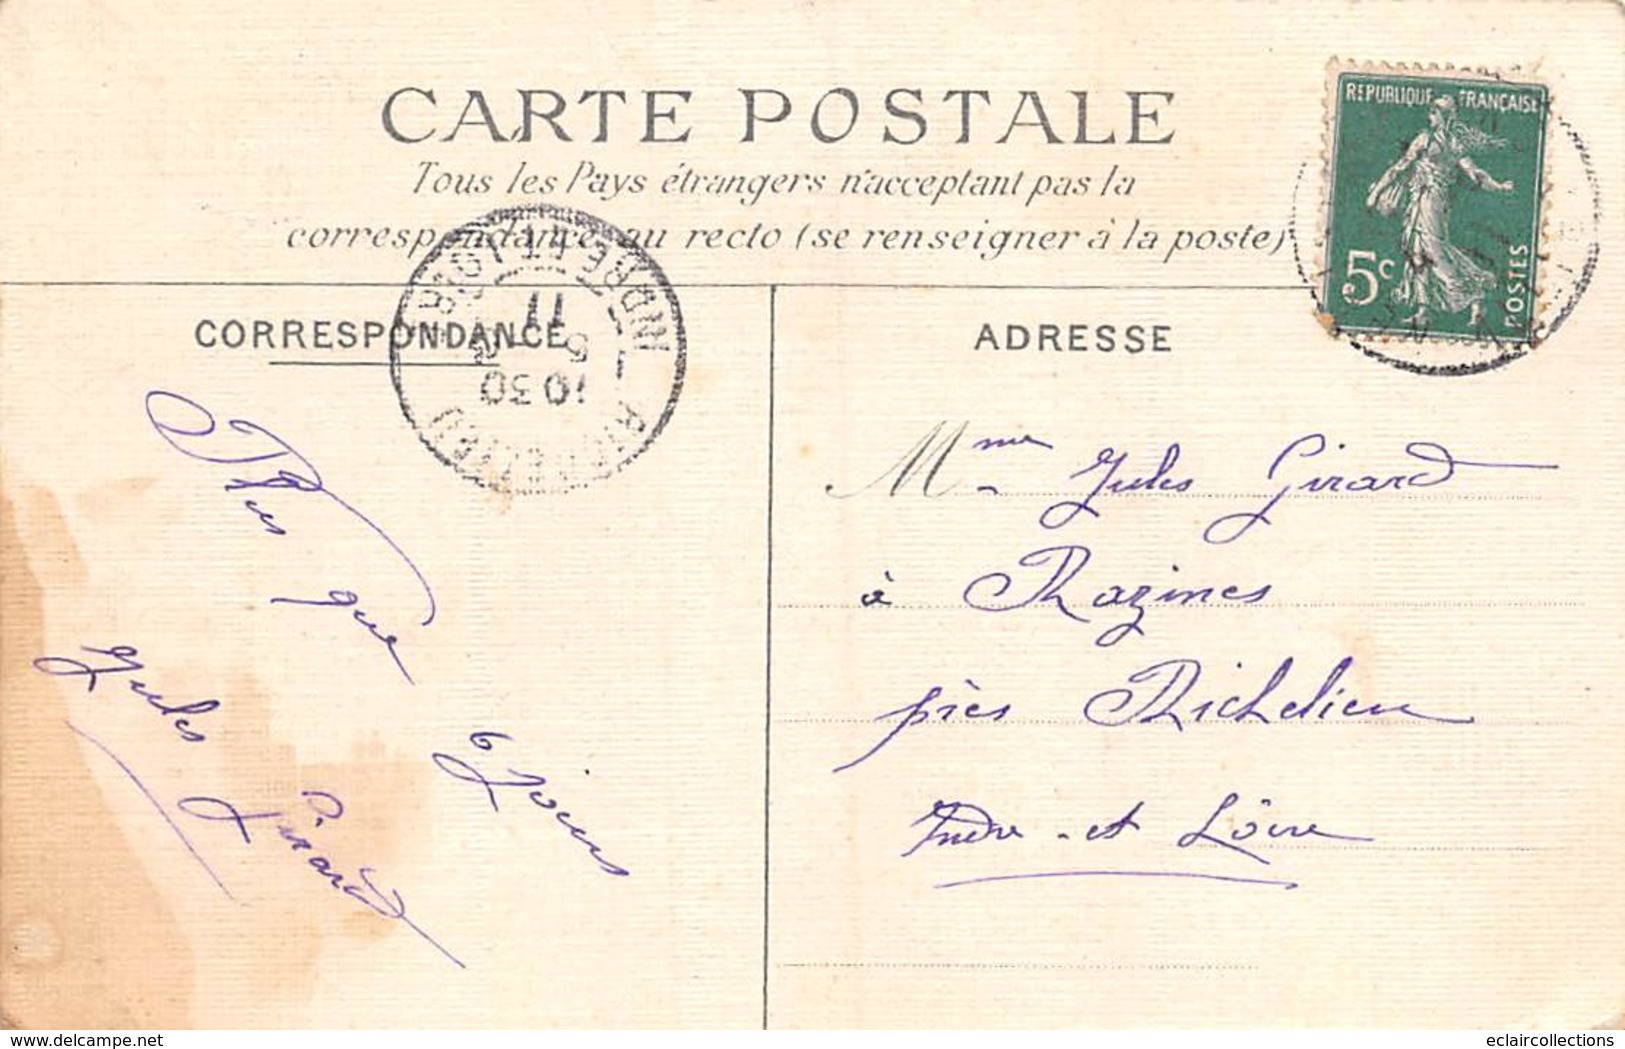 CARTE POSTALE
Tous les Pays étrangers n'acceptant pas la
correspondance au recto (se renseigner à la poste)
RÉPUBLIQUE FRANÇAISE
5c
POSTES
CORRESPONDANCE
INDRE ET LOIRE
11
5
10 30
RICHELIEU
Plus que 6 jours
Jules Girard
ADRESSE
Mme Jules Girard
à Razines
près Richelieu
Indre-et Lôire
www.delcampe.net
eclaircollections